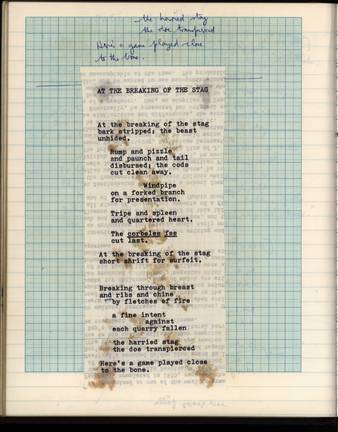 the harried stag
the doe transpierced
Here's a game played close
to the bone.
AT THE BREAKING OF THE STAG
At the breaking of the stag
bark stripped; the beast
unhided.
Rump and pizzle
and paunch and tail
disbursed; the cods
cut clean away.
Windpipe
on a forked branch
for presentation.
Tripe and spleen
and quartered heart.
The corbeles fee
cut last.
At the breaking of the stag
short shrift for surfeit.
Breaking through breast
and ribs and chine
by fletches of fire
a fine intent
against
each quarry fallen
the harried stag
the doe transpierced
Here's a game played close
to the bone.